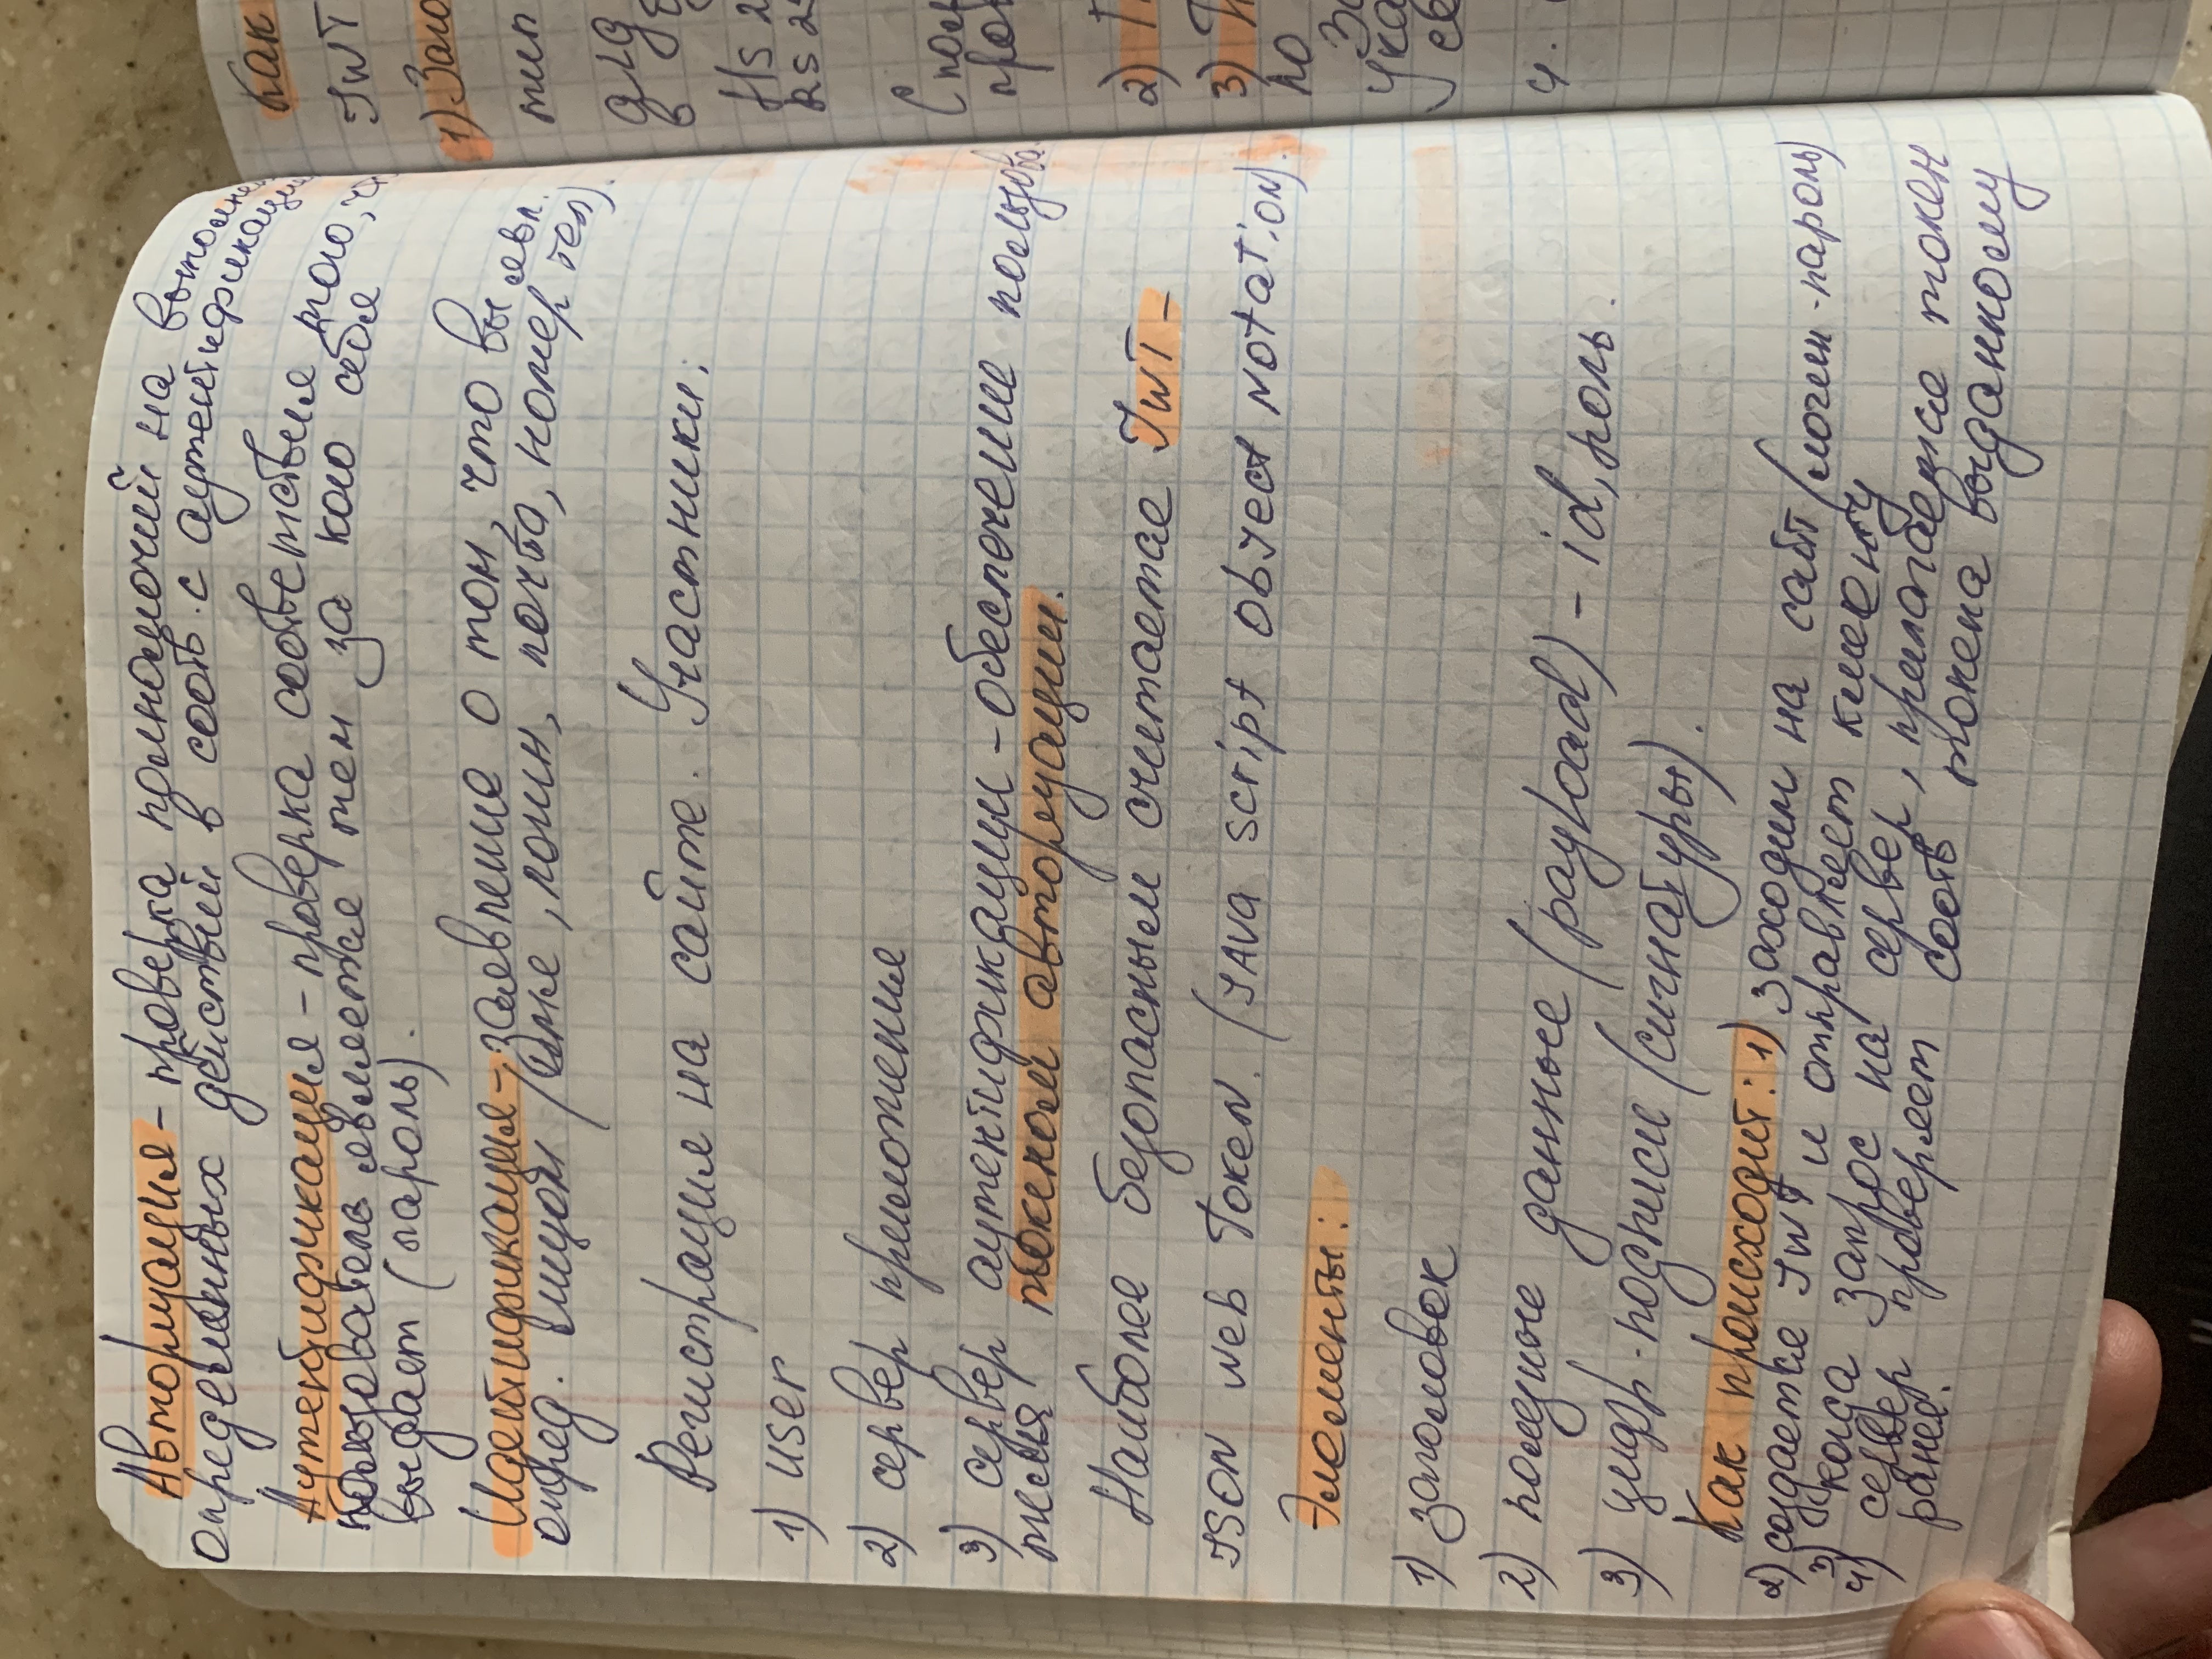 Авторизация - проверка полномочий на выполнен
определенных действий в соотв. с аутентификацией
Аутентификация - проверка соответствия того, что
пользователь является тем за кого себя
выдает (пароль).
Идетификация - заявление о том, что вы явл.
опред. лицом (имя, логин, почта, номер тел).
Регистрация на сайте. Участники:
1) user
2) сервер приложения
3) сервер аутентификации - обеспечение пользова-
теля токеном авторизации.
Наиболее безопасным считается JWT -
JSON Web Token. (JAva script Object Notation).
Элементы:
1) заголовок
2) полезные данные (payload) - id, роль.
3) цифр. подписи (сигнатуры).
Как происходит: 1) заходим на сайт (логин-пароль)
2) создается JWT и отправляет клиенту
3) когда запрос на сервер, прилагается токен
4) сервер проверяет соотв токена выданному
ранее.
Как
JWT
1) Заго
тип
alg
в
HS 2
RS 25
(поль
пров
2) П
3)
по
За
ука
се
4.